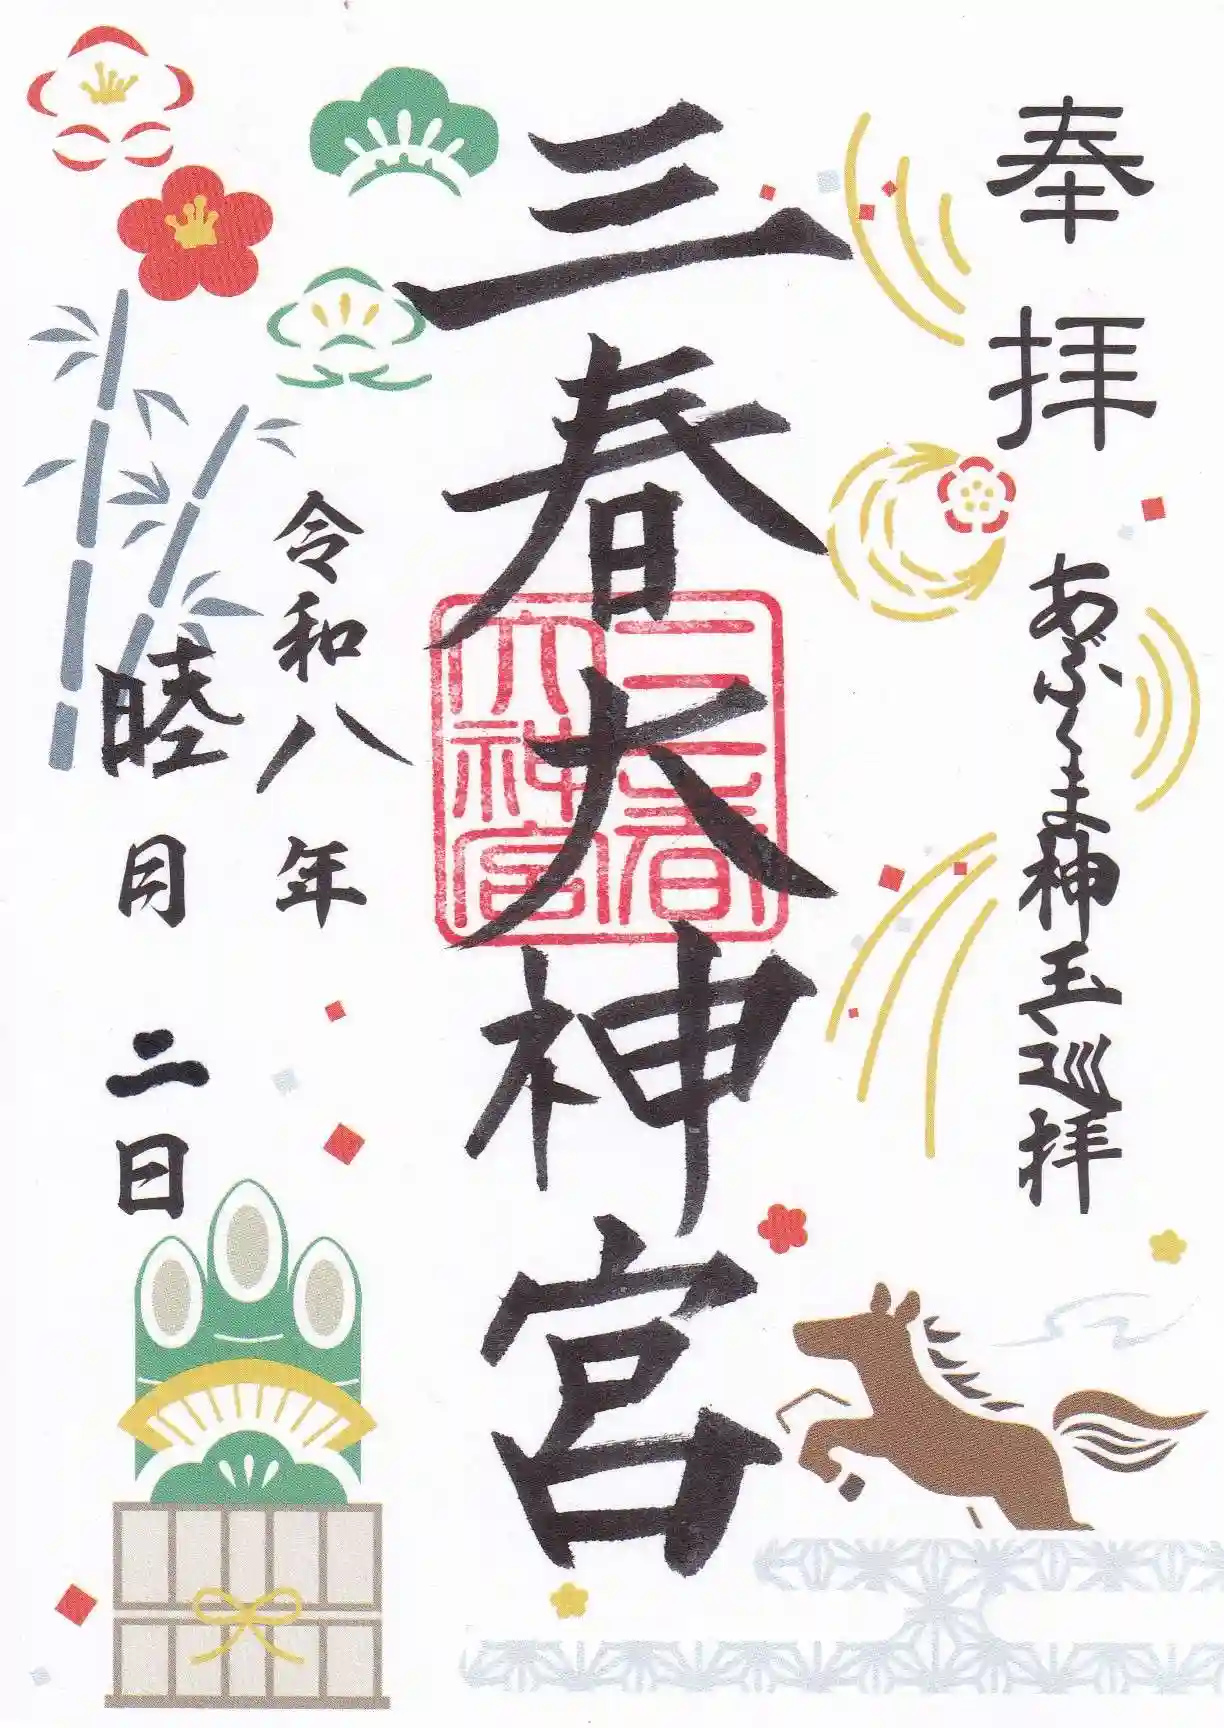 奉拝
あぶくま神玉巡拝
三春大神宮
三春大神宮
令和八年
睦月二日